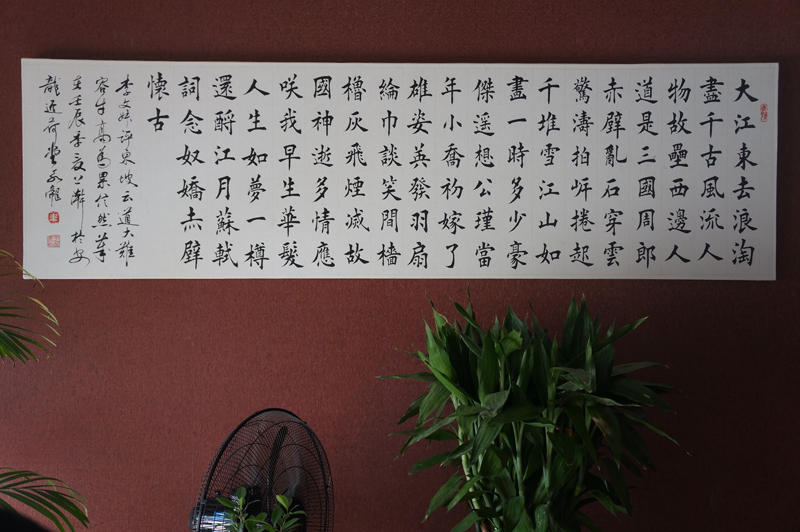 大江東去浪淘
盡千古風流人
物故壘西邊人
道是三國周郎
赤壁亂石穿雲
驚濤拍岸捲起
千堆雪江山如
畫一時多少豪
傑遥想公瑾當
年小喬初嫁了
雄姿英發羽扇
綸巾談笑間檣
櫓灰飛煙滅故
國神遊多情應
咲我早生華髮
人生如夢一樽
還酹江月蘇軾
詞念奴嬌赤壁
懷古
李文評東坡云道大難
容才高為累信然
壬辰季夏於安
龍近荷堂龍